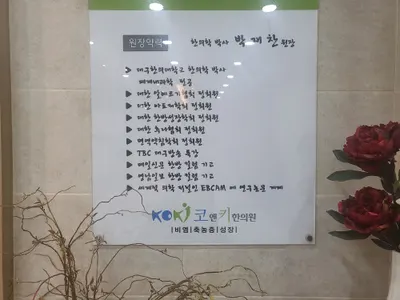 원장약력
한의학 박사 박재찬 원장
▶ 대구한의대학교 한의학 박사
전공
▶ 대한 알레르기학회 정회원
▶ 대한 아토피학회 정회원
▶ 대한 한방성장학회 정회원
▶ 대한 학회 정회원
▶ 면역약침학회 정회원
▶ TBC 대구방송 특강
▶ 매일신문 한방 칼럼 기고
▶ 영남일보 한방 칼럼 기고
▶ 세계적 의학 저널인 EBCAM 에 연구논문 게재
KOKI 코앤키한의원
|비염|축농증|성장|